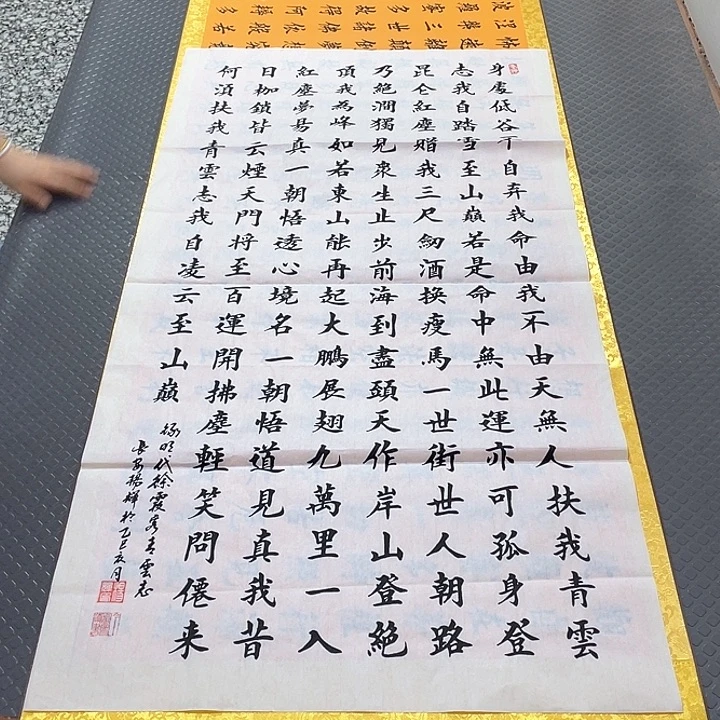 身處低谷不自弃我命由我不由天無人扶我青雲
志我自踏雪至山巔若是命中無此運亦可孤身登
昆仑紅塵贈我三尺劒酒換瘦馬一世街世人朝路
乃絕澗獨見衆生止步前海到盡頭天作岸山登絕
頂我為峰如若東山能再起大鵬展翅九萬里一入
紅塵夢易真一朝悟透心境名一朝悟道見真我昔
日枷鎖皆云煙天門將至百運開拂塵輕笑問僊来
何湏扶我青雲志我自凌云至山巔
録明代徐霞客青雲志
長安楊輝於乙巳夏月